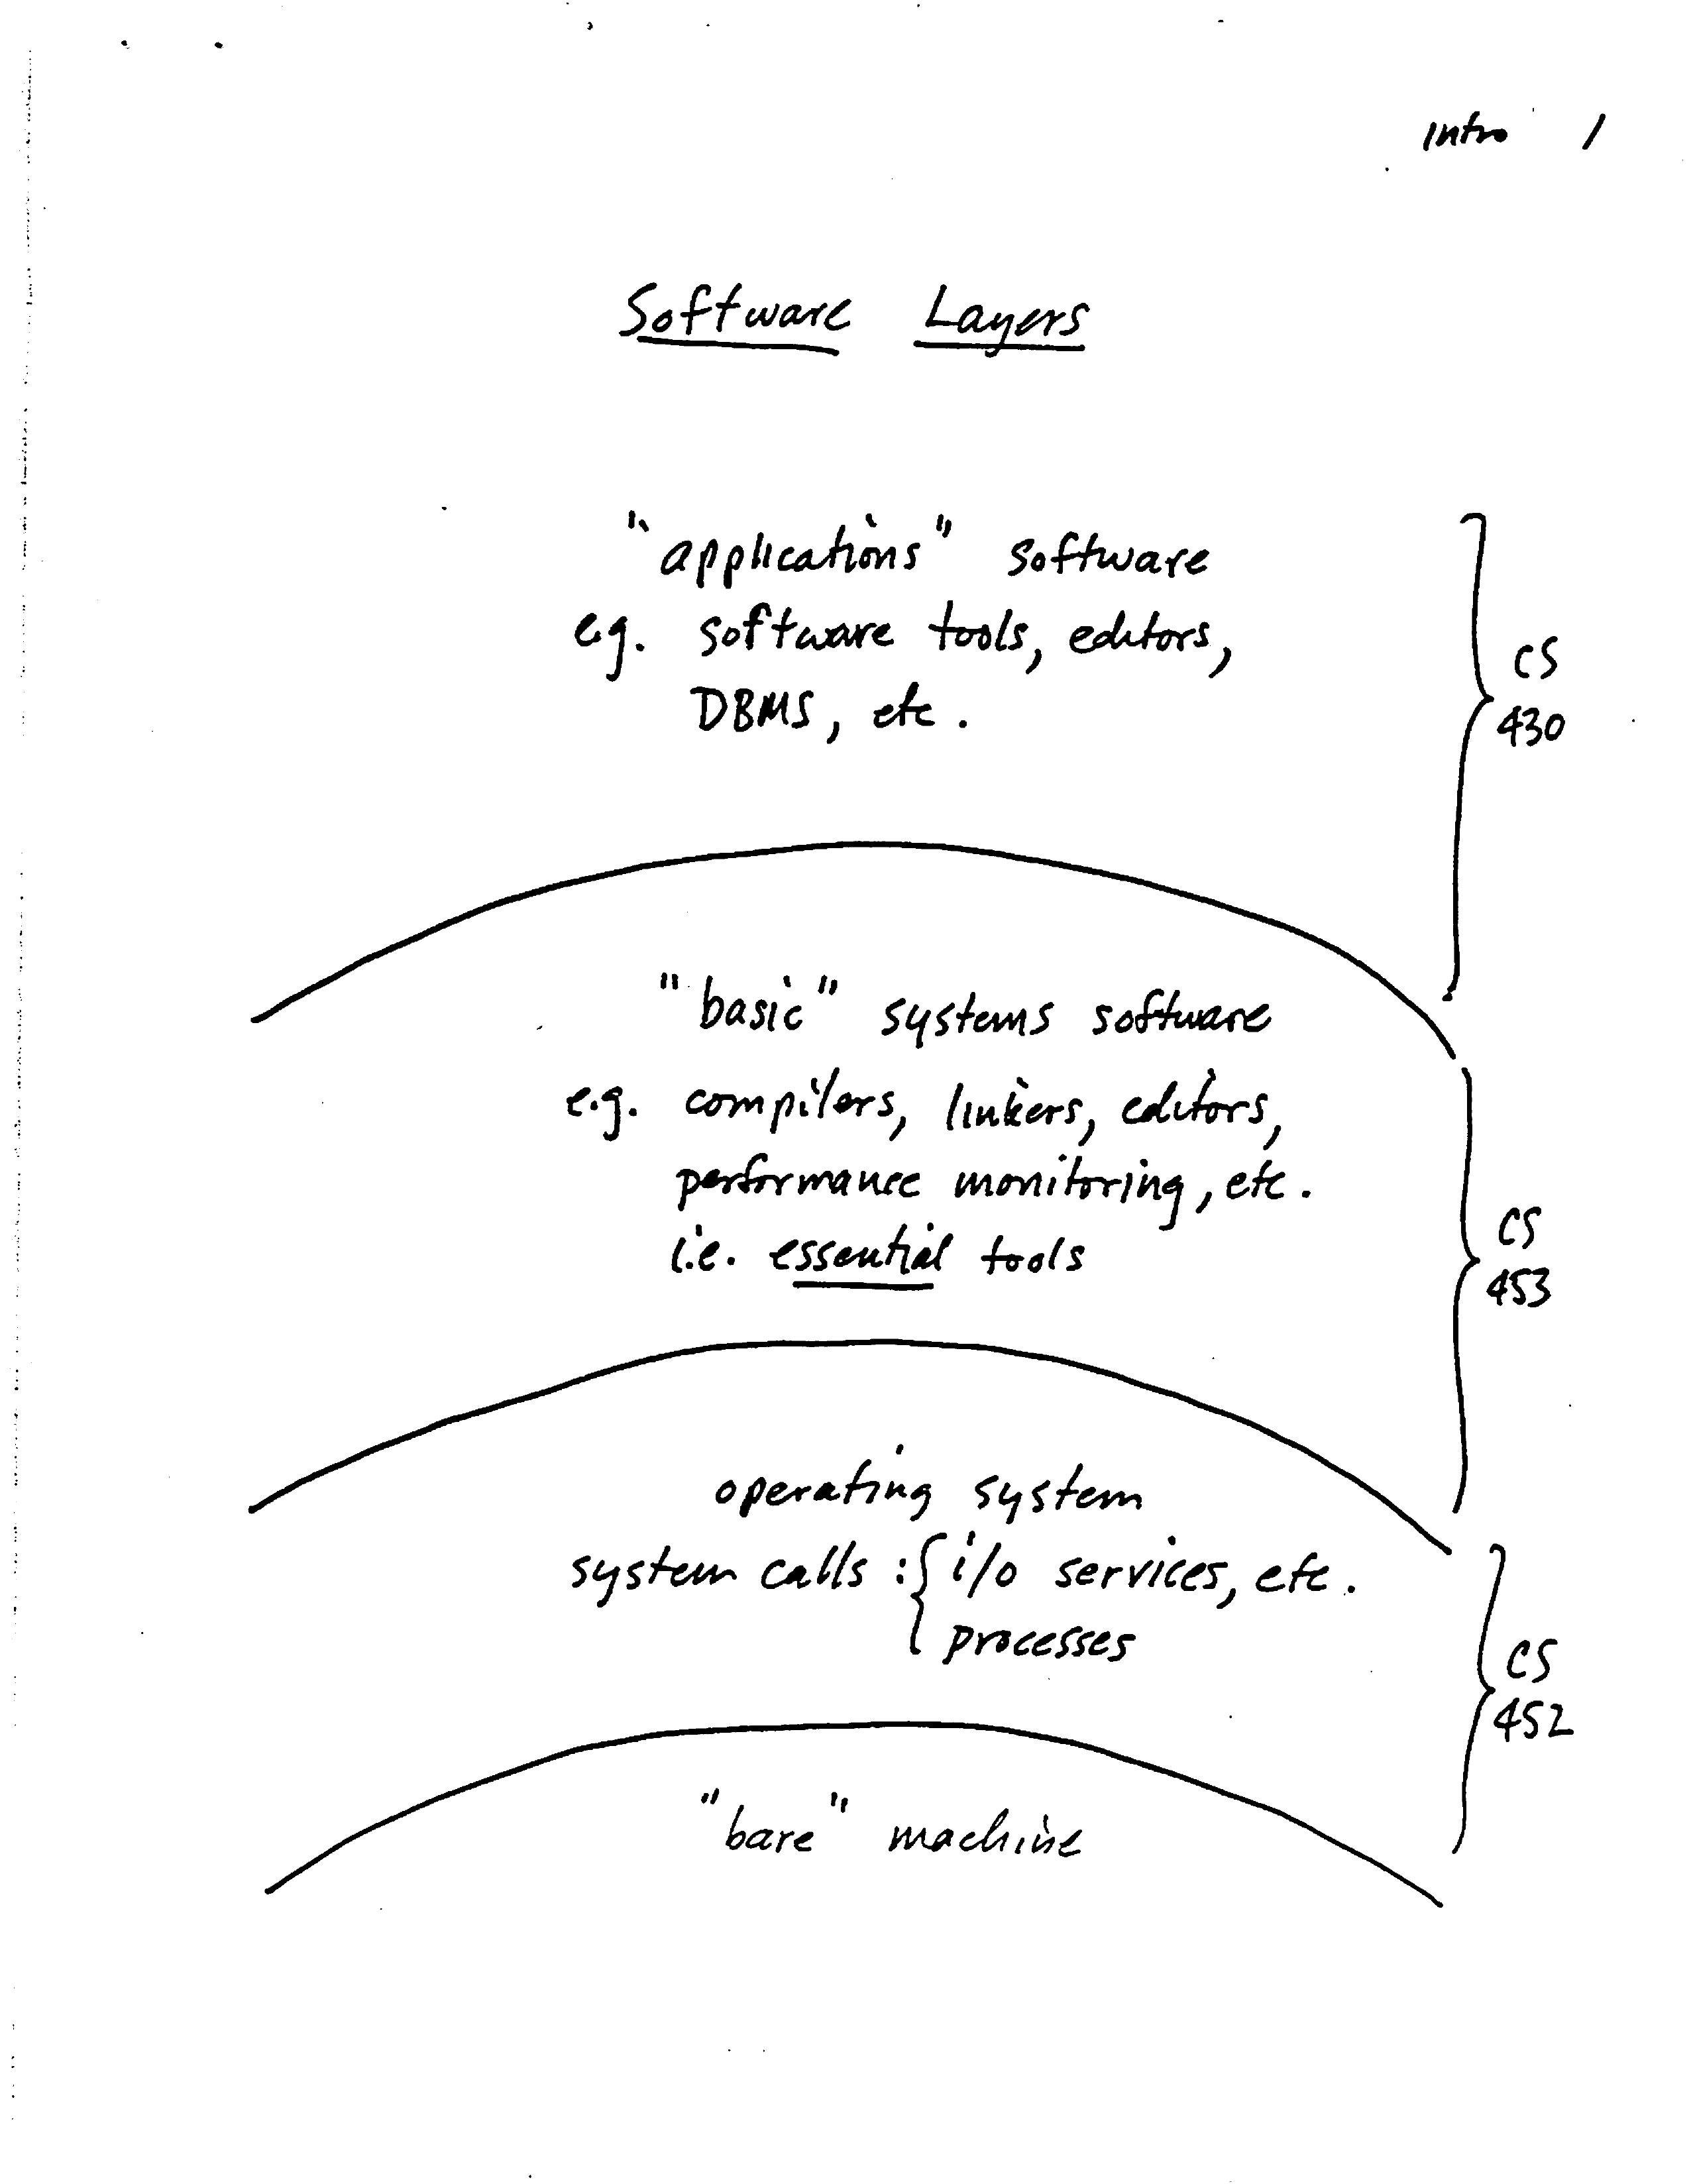 Intro 1
Software Layers
"applications" software
e.g. software tools, editors,
DBMS, etc.
CS
430
"basic" systems software
e.g. compilers, linkers, editors,
performance monitoring, etc.
i.e. essential tools
CS
453
operating system
system calls : { i/o services, etc.
processes
CS
452
"bare" machine